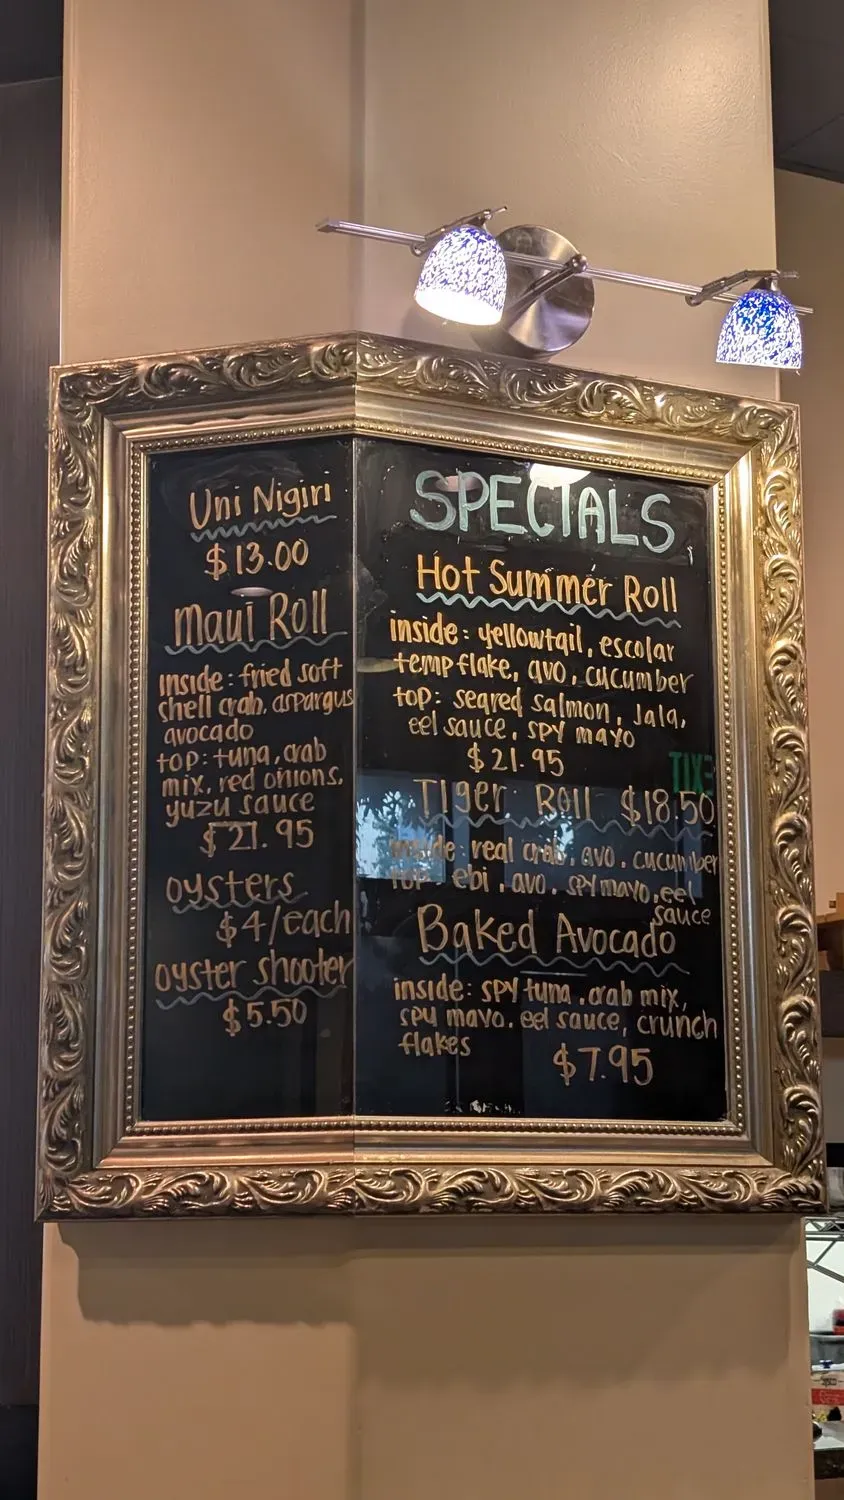 Uni Nigiri
$13.00
Maui Roll
inside: fried soft
shell crab, aspargus
avocado
top: tuna, crab
mix, red onions,
yuzu sauce
$21.95
oysters
$4/each
oyster shooter
$5.50
SPECIALS
Hot Summer Roll
inside: yellowtail, escolar
temp flake, avo, cucumber
top: seared salmon, jala,
eel sauce, spy mayo
$21.95
EXIT
Tiger Roll $18.50
inside: real crab, avo, cucumber
top: ebi, avo, spy mayo, eel
sauce
Baked Avocado
inside: spy tuna, crab mix,
spy mayo, eel sauce, crunch
flakes
$7.95